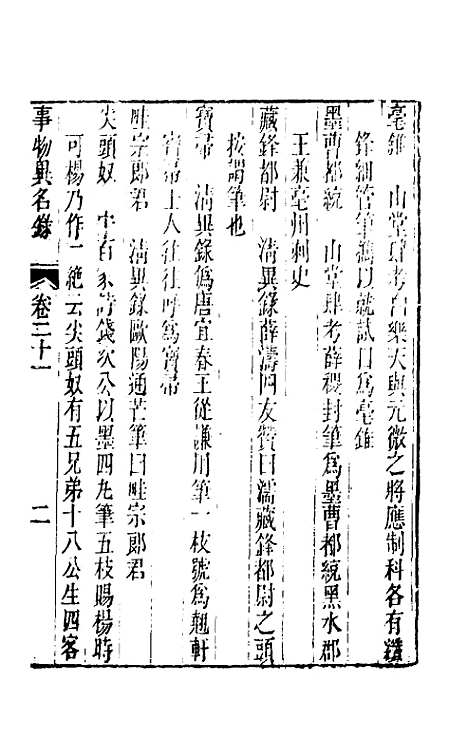 毫錐　山堂肆考白樂天與元微之將應制科各有纖
鋒細管筆攜以就試目為毫錐
墨曹都統　山堂肆考薛稷封筆為墨曹都統黑水郡
王兼亳州刺史
藏鋒都尉　清異錄薛濤四友贊曰濡藏鋒都尉之頭
按謂筆也
寶帚　清異錄偽唐宜春王從謙用筆一枝號為翹軒
寶帚士人往往呼為寶帚
畦宗郎君　清異錄歐陽通芒筆曰畦宗郎君
尖頭奴　宋百家詩錢次公以墨四丸筆五枝賜楊時
可楊乃作一絕云尖頭奴有五兄弟十八公生四客
事物異名錄　卷二十一　二